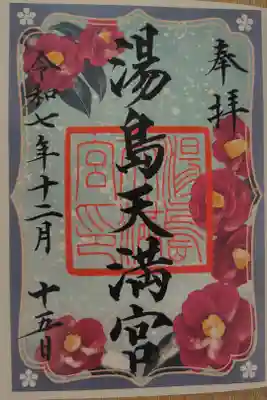 奉拝
湯島天満宮
令和七年十二月 十五日